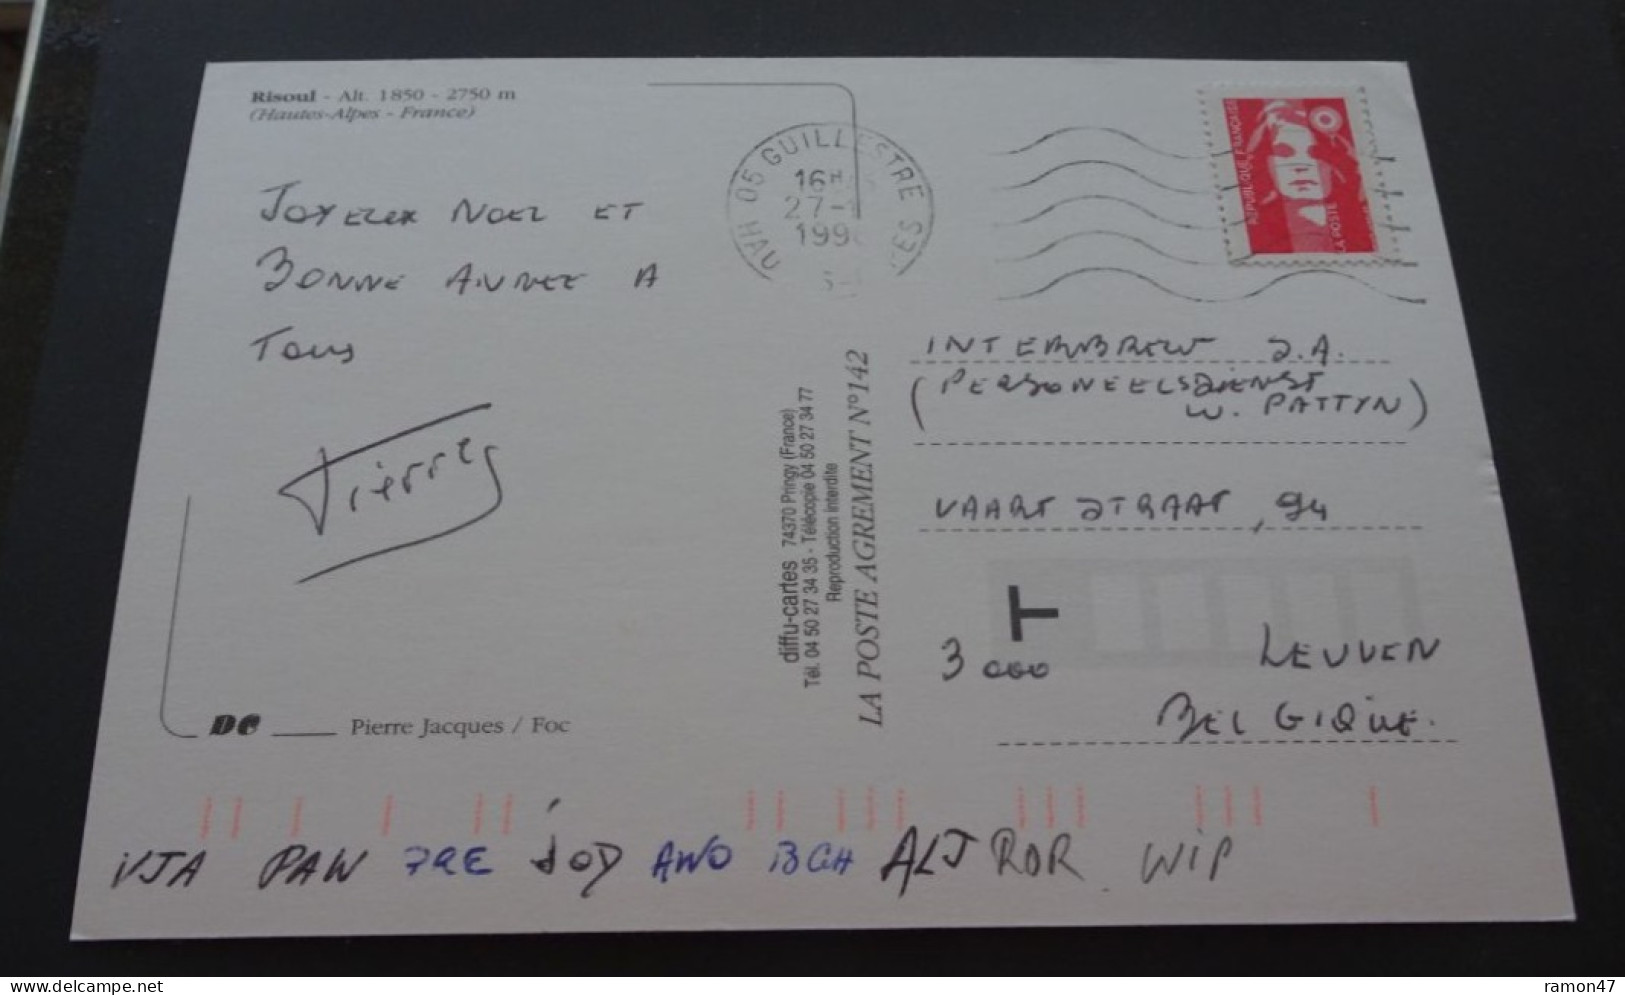 Risoul - Alt. 1850 - 2750 m
(Hautes-Alpes - France)
JOYEUX NOEL ET
BONNE ANNEE A
TOUS
Pierre
DC Pierre Jacques / Foc
05 GUILLESTRE
16H
27-
199
HAU
ES
diffu-cartes 74370 Pringy (France)
Tél. 04 50 27 34 35 - Télécopie 04 50 27 34 77
Reproduction Interdite
LA POSTE AGREMENT N°142
REPUBLIQUE FRANÇAISE
LA POSTE
INTERBREW S.A.
(PERSONEELSDIENST
W. PATTYN)
VAART STRAAT, 94
T
3000 LEUVEN
BELGIQUE.
VJA PAW JOD AWO BGH ALJ ROR WIP
delcampe.net
ramon47